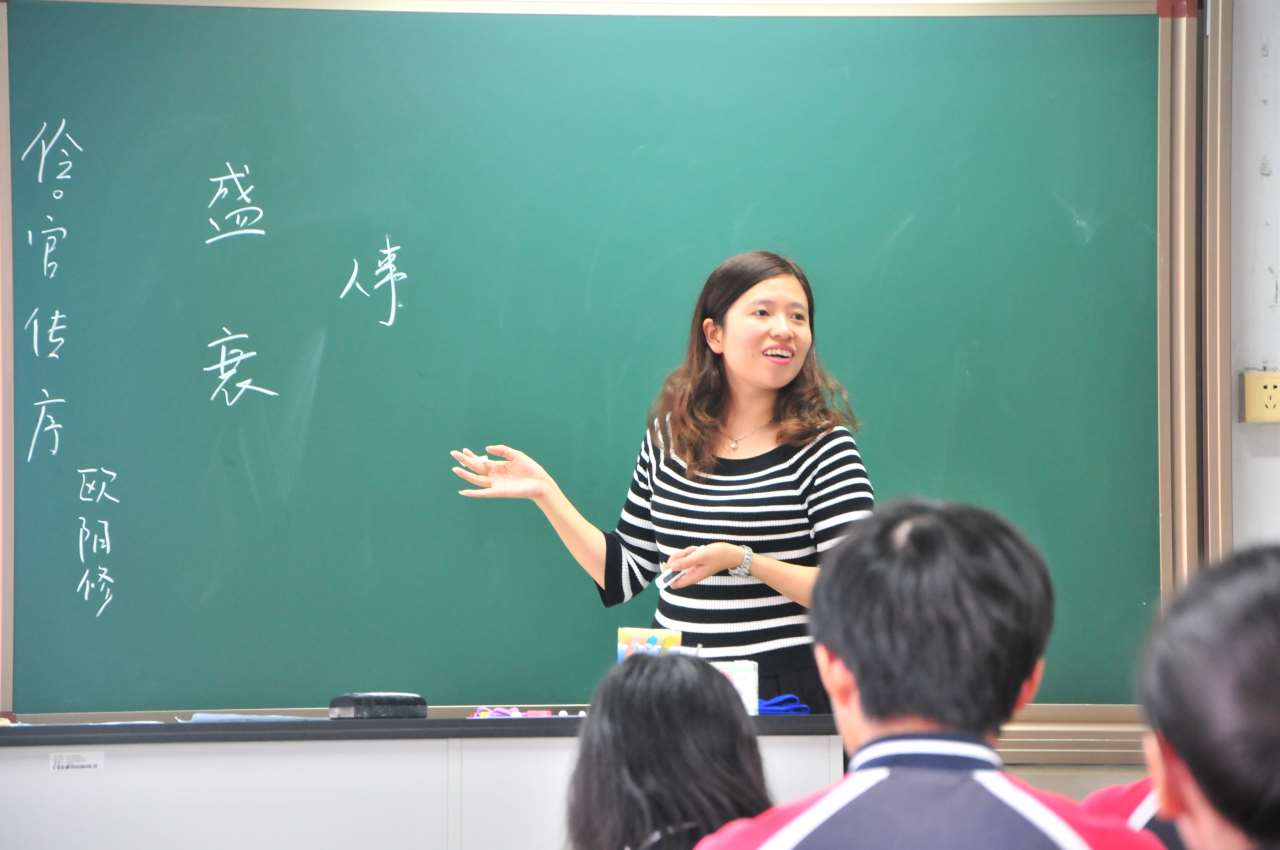 伶官传序
欧阳修
盛
衰
人事